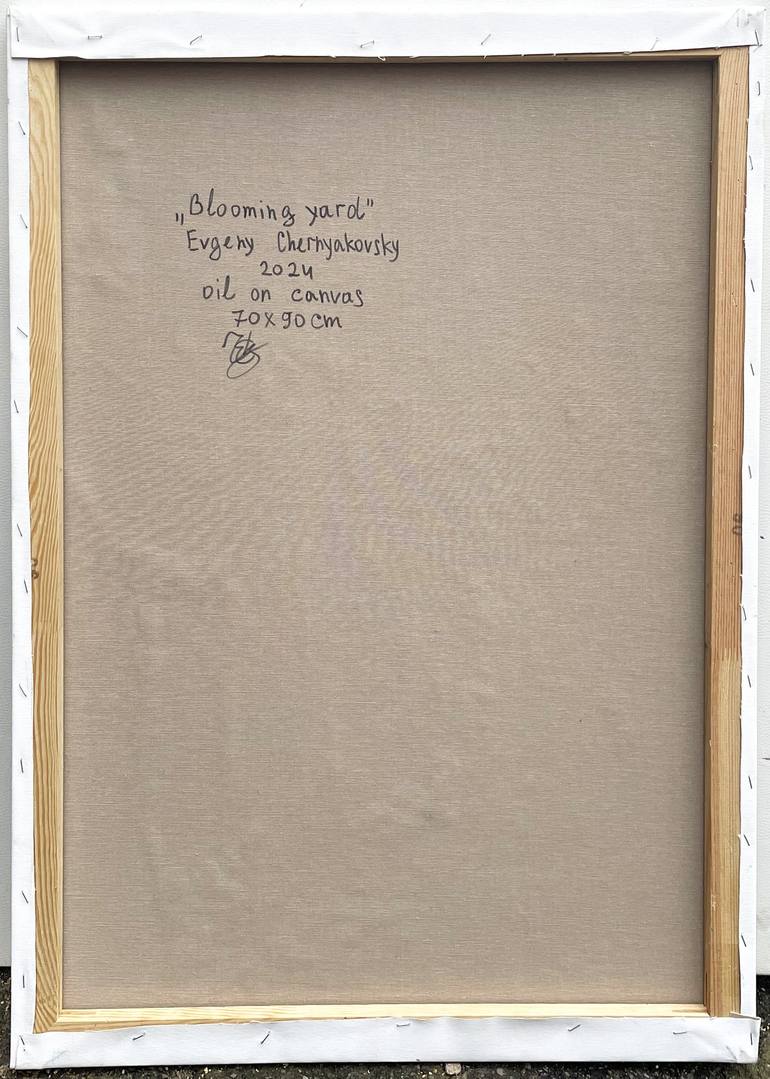 „Blooming yard"
Evgeny Chernyakovsky
2024
oil on canvas
70x90 cm